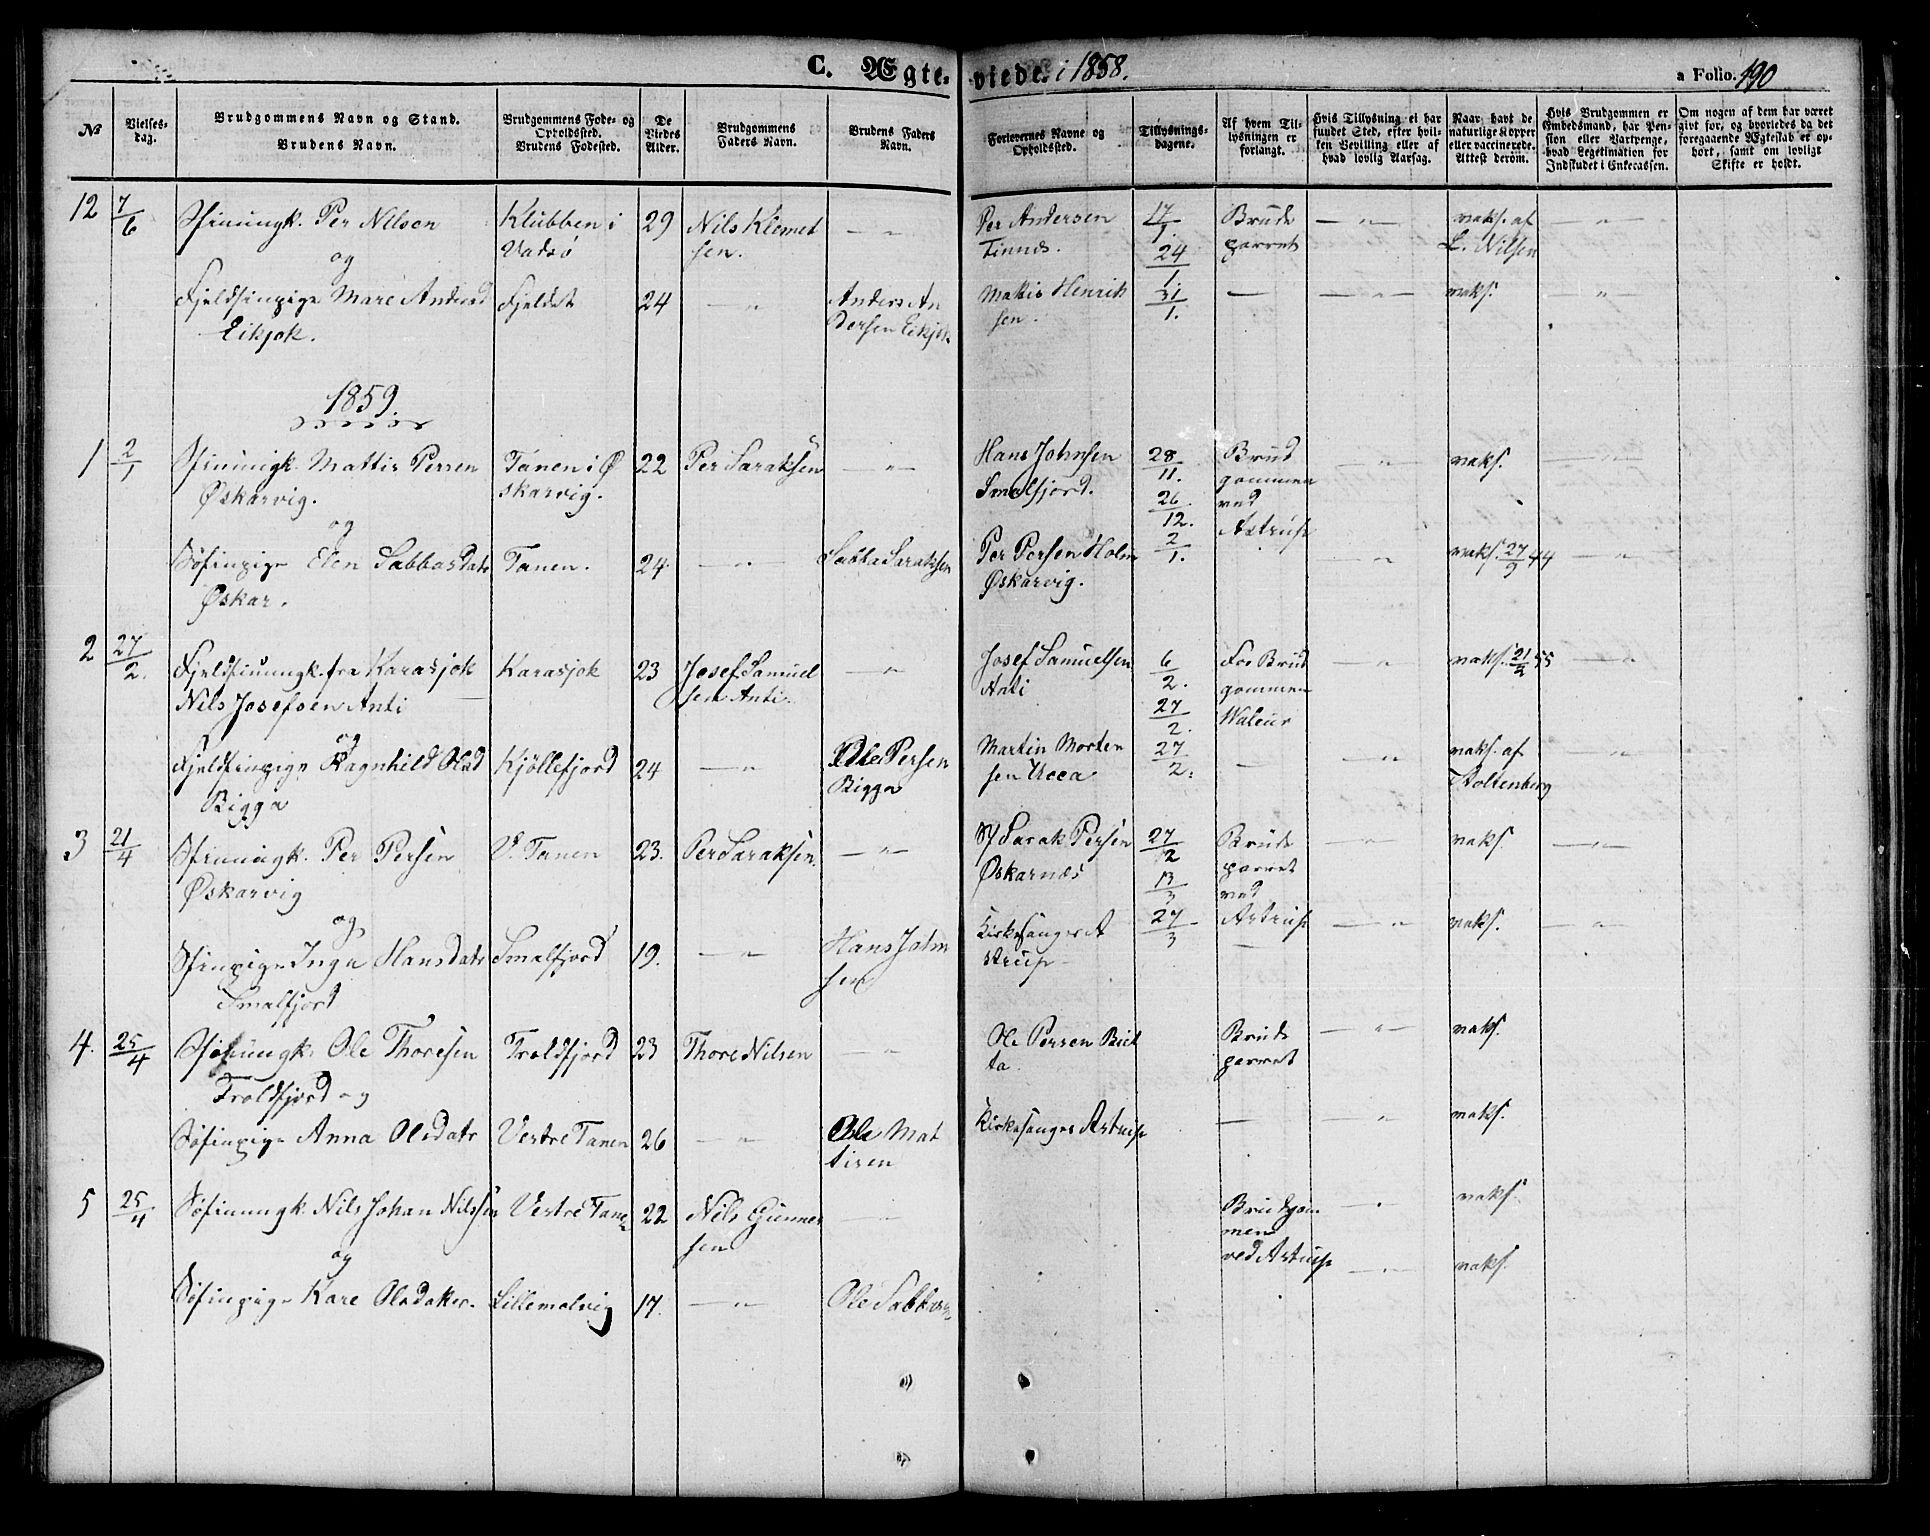 C. Ægte- viede. i 1858.
a Folio. 190
No
Vielses-
dag.
Brudgommens Navn og Stand.
Brudens Navn.
Brudgommens Føde- og
Opholdssted.
Brudens Fødested.
De
Viedes
Alder.
Brudgommens
Faders Navn.
Brudens Faders
Navn.
Forlovernes Navne og
Opholdssted.
Tillysnings-
dagene.
Af hvem Til-
lysningen er
forlangt.
Hvis Tillysning ei har
fundet Sted, efter hvil-
ken Bevilling eller af
hvad lovlig Aarsag.
Naar havt de
naturlige Kopper
eller vaccinerede.
Attest derom.
Hvis Brudgommen er
Embedsmand, har Pen-
sion eller Vartpenge,
hvad Legitimation for
Indskudet i Enkecassen.
Om nogen af dem har været
gift før, og hvorledes da det
foregaaende Ægteskab er op-
hørt, samt om lovligt
Skifte er holdt.
12 7/6 Per Nilsen Klubben i 29 Nils Klemet — " —
Vadsø sen.
og
Mare Andersd Fjeldet 24 — " — Anders An
Eikjok. dersen Eikjok
Per Andersen 17/1. Brude — " — vaks. af — " —
Finnes. 24/1. parret L. Nilsen
Mattis Henrik 31/1. — — " — vaks. — " —
sen.
1859.
1 2/1 Mattis Persen Tanen i Ø 22 Per Saraksen — " —
Øskarvig. skarvig.
og
Søfinpige Elen Sabbasdatr Tanen. 24. — " — Sabba Saraksen
Øskar.
Hans Johnsen 28/11. Brud — " — vaks. — " —
Smalfjord. 26/12. gommen
ved
Per Persen Holm 2/1. Astrup — " — vaks. 27/9 44 — " —
Øskarvig.
2 27/2. Fjeldfinungk. fra Karasjok Karasjok 23 Josef Samuel — " —
Nils Josefsen Anti sen Anti.
og
Fjeldfinpige Ragnhild Olsd Kjøllefjord 24 — " — Ole Persen
Bigga Bigga
Josef Samuelsen 6/2. For Brud — " — vaks. 21/2 55 — " —
Anti 27/2. gommen
Waleur
Martin Morten 27/2. — — " — vaks. af "
sen Ucca Stoltenberg
3 21/4 Per Persen V. Tanen 23. Per Saraksen. — " —
Øskarvig
og
Inga Hansdatr Smalfjord 19. — " — Hans John
Smalfjord sen
Sarak Persen 27/2 Brude — " — vaks. — " —
Øskarnæs 13/3 parret
ved
Kirkesanger A 27/3 Astrup — " — vaks. — " —
strup
4. 25/4 Ole Thoresen Troldfjord 23 Thore Nilsen — " —
Troldfjord og
Søfinpige Anna Olsdatr Vestre Tanen 26 — " — Ole Mat
tisen
Ole Persen Biet Brude — " — vaks.
ta. parret
Kirkesanger Astrup — — " — vaks.
5 25/4 Søfinungk. Nils Johan Nilssen Vestre Tanen 22 Nils Gunner —
sen
og
Søfinpige Kare Olsdatter. Lillemolvig 17. — " — Ole Sabbasen
Brudgom — " — vaks.
men
ved Astrup — " — vaks.